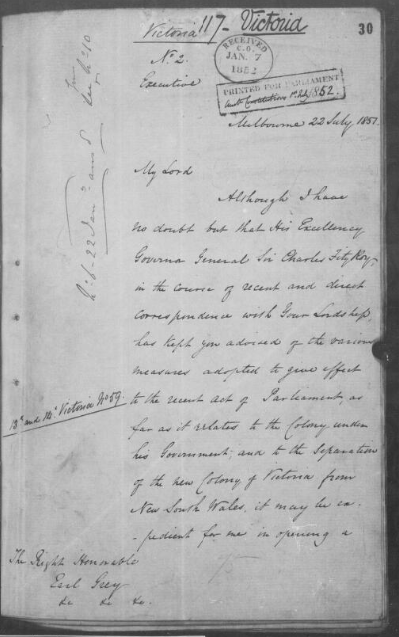 Victoria 117 - Victoria
30
No. 2
Executive
RECEIVED
C.O.
JAN. 7
1852
PRINTED FOR PARLIAMENT
1852.
Melbourne 22 July, 1851.
My Lord
Although I have
no doubt but that His Excellency
Governor General Sir Charles FitzRoy,
in the course of recent and direct
correspondence with Your Lordship,
has kept you advised of the various
measures adopted to give effect
to the recent act of Parliament, as
13th and 14th Victoria No 59.
far as it relates to the Colony under
his Government, and to the separation
of the new Colony of Victoria from
New South Wales, it may be ex
- pedient for me in opening a
The Right Honorable
Earl Grey
&c &c &c.